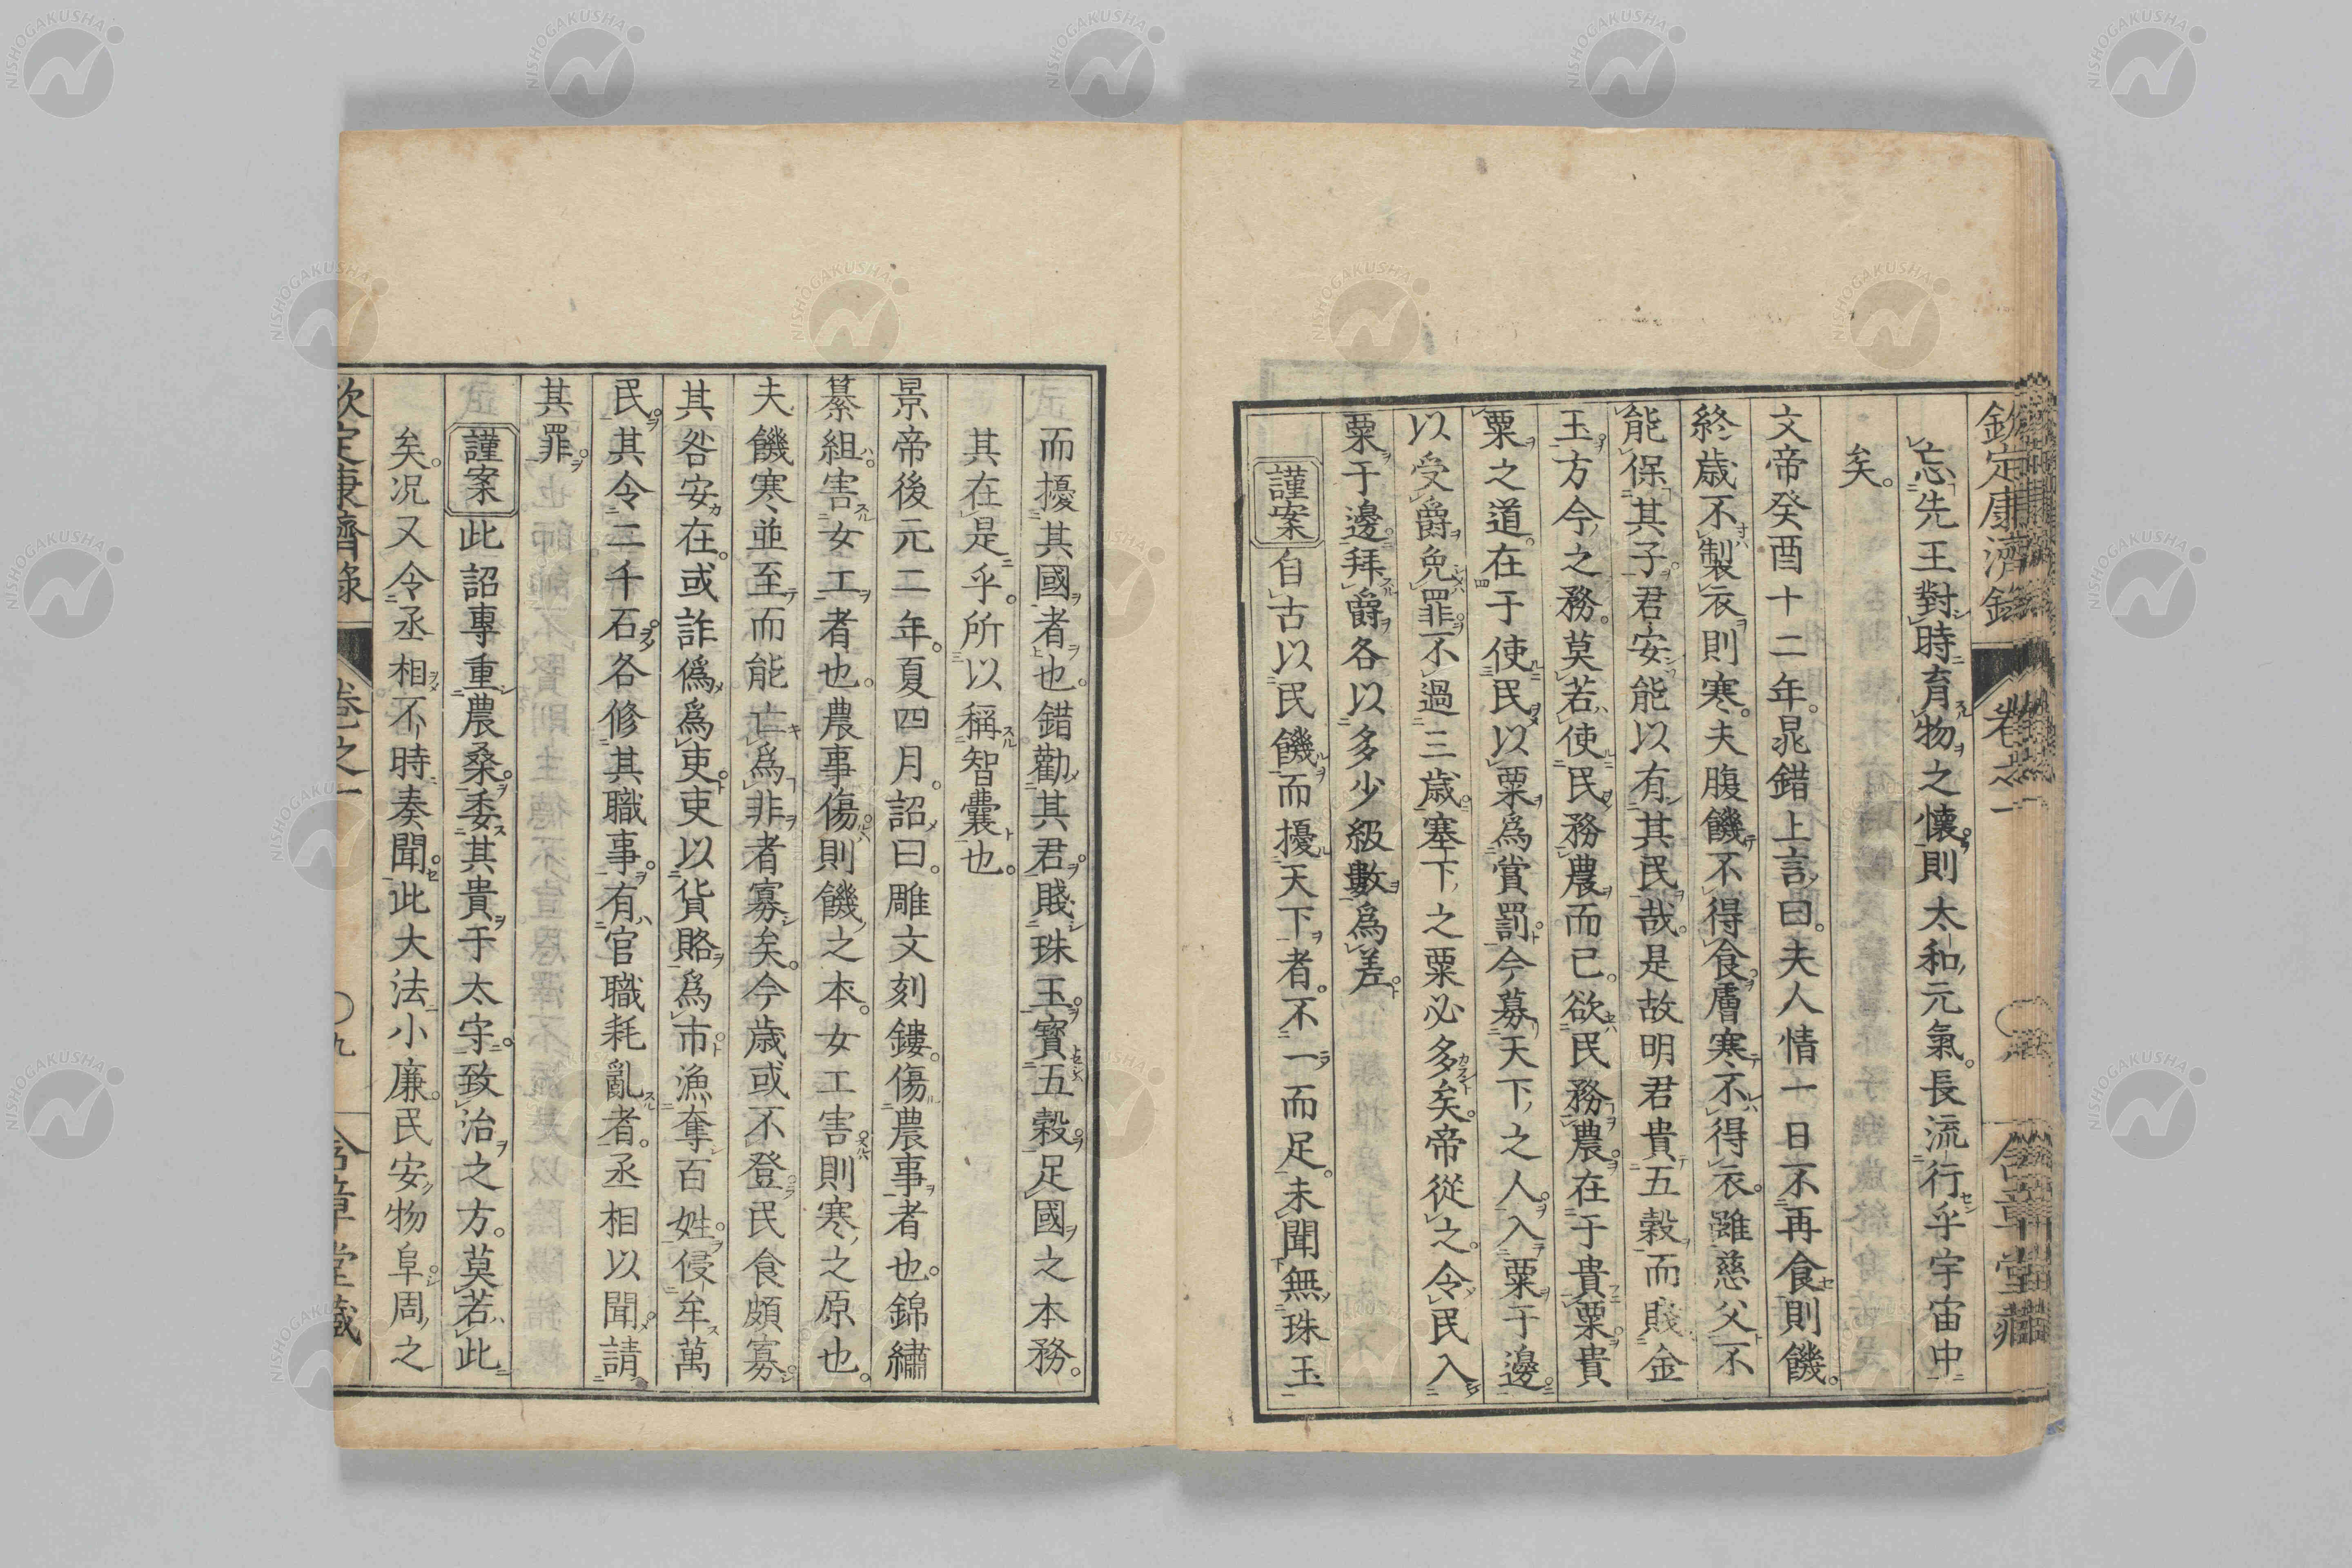 欽定康濟錄 卷之一 含章堂藏
忘先王對時育物之懷則太和元氣。長流行乎宇宙中
矣。
文帝癸酉十二年。晁錯上言曰。夫人情一日不再食則饑。
終歲不製衣則寒。夫腹饑不得食膚寒不得衣。雖慈父不
能保其子。君安能以有其民哉。是故明君貴五穀而賤金
玉。方今之務。莫若使民務農而已。欲民務農。在于貴粟。貴
粟之道。在于使民以粟爲賞罰。今募天下之人。入粟于邊。
以受爵免罪。不過三歲。塞下之粟必多矣。帝從之。令民入
粟于邊。拜爵各以多少級數爲差。
謹案自古以民饑而擾天下者。不一而足。未聞無珠玉
而擾其國者也。錯勸其君。賤珠玉。寳五穀。足國之本務。
其在是乎。所以稱智囊也。
景帝後元二年。夏四月。詔曰。雕文刻鏤。傷農事者也。錦繡
纂組。害女工者也。農事傷。則饑之本。女工害。則寒之原也。
夫饑寒並至而能亡爲非者寡矣。今歲或不登。民食頗寡。
其咎安在。或詐僞爲吏。吏以貨賂爲市。漁奪百姓。侵牟萬
民。其令二千石。各修其職事。有官職耗亂者。丞相以聞。請
其罪。
謹案此詔專重農桑。委其貴于太守。致治之方。莫若此
矣。况又令丞相不時奏聞。此大法小廉。民安物阜。周之
欽定康濟錄 卷之一 〇九 含章堂藏
NISHOGAKUSHA